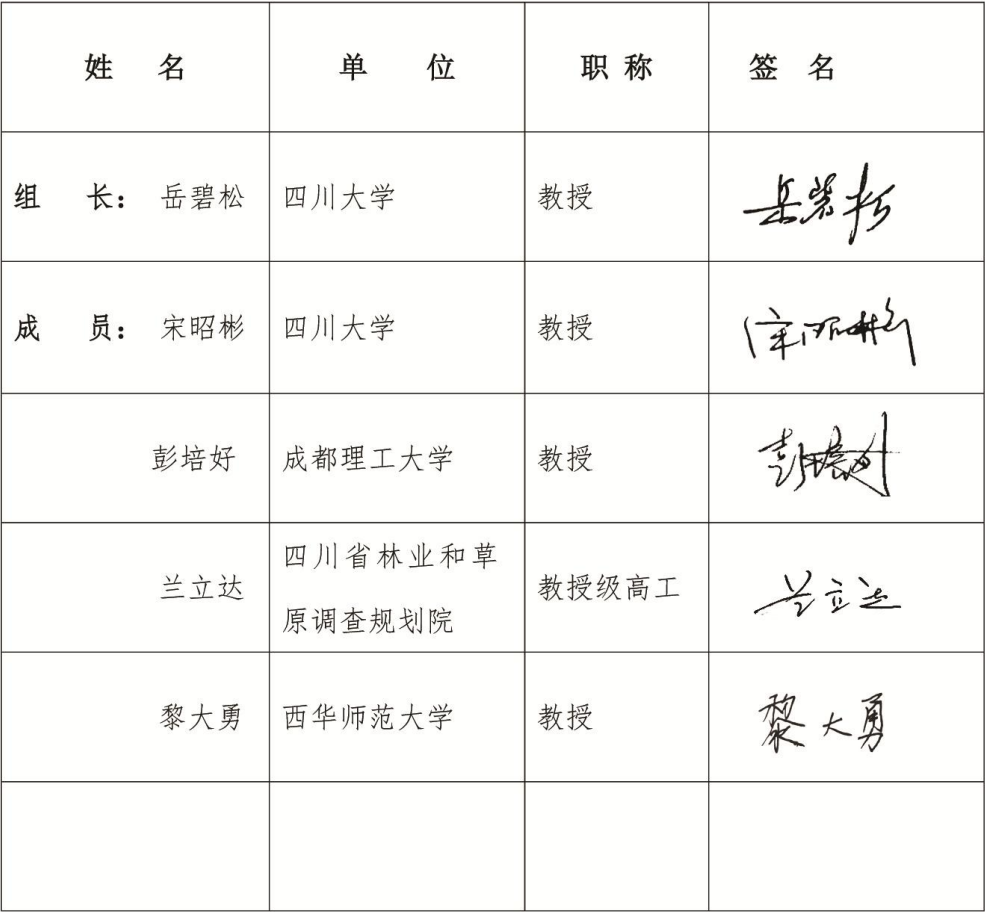 姓 名 单 位 职 称 签 名
组 长： 岳碧松 四川大学 教授 岳碧松
成 员： 宋昭彬 四川大学 教授 宋昭彬
彭培好 成都理工大学 教授 彭培好
兰立达 四川省林业和草 教授级高工 兰立达
原调查规划院
黎大勇 西华师范大学 教授 黎大勇